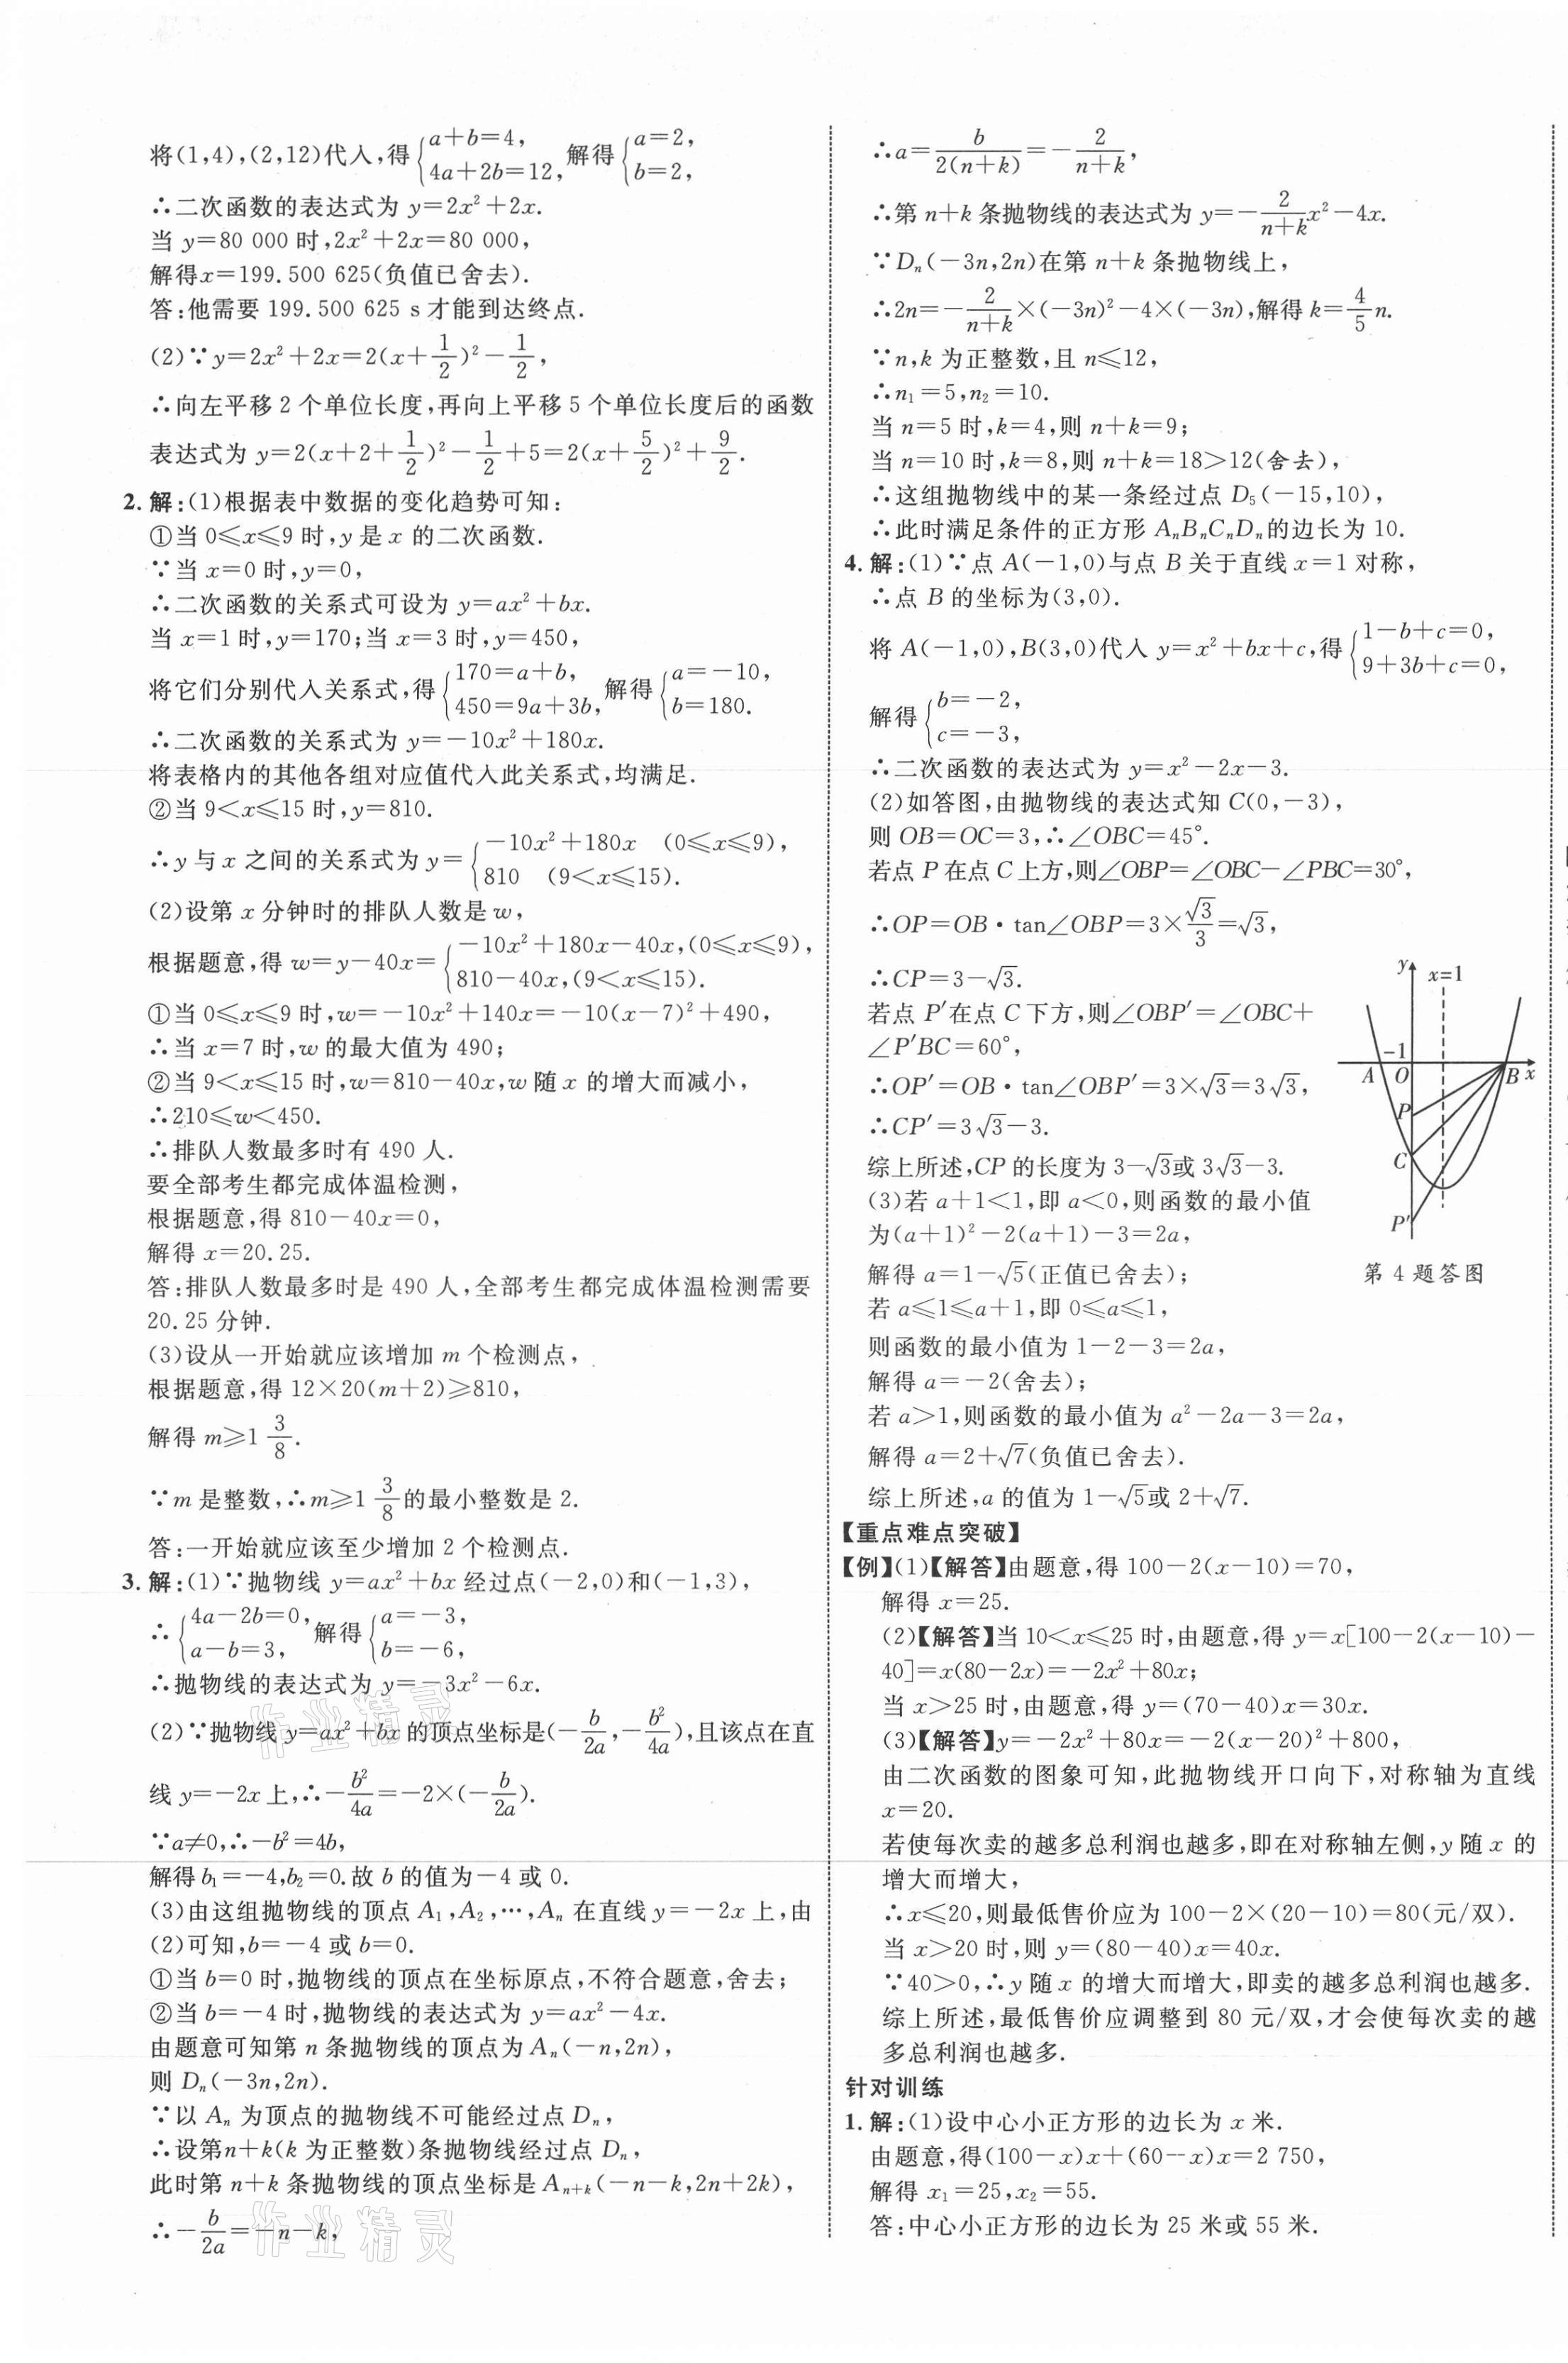 将(1,4),(2,12)代入,得{a+b=4, 4a+2b=12, 解得{a=2, b=2,
∴二次函数的表达式为 y=2x²+2x.
当 y=80 000 时,2x²+2x=80 000,
解得x=199.500 625(负值已舍去).
答:他需要 199.500 625 s 才能到达终点.
(2)∵y=2x²+2x=2(x+1/2)²-1/2,
∴向左平移 2 个单位长度,再向上平移 5 个单位长度后的函数
表达式为 y=2(x+2+1/2)²-1/2+5=2(x+5/2)²+9/2.
2. 解:(1)根据表中数据的变化趋势可知:
①当 0≤x≤9 时,y 是 x 的二次函数.
∵当 x=0 时,y=0,
∴二次函数的关系式可设为 y=ax²+bx.
当 x=1 时,y=170;当 x=3 时,y=450,
将它们分别代入关系式,得{170=a+b, 450=9a+3b, 解得{a=-10, b=180.
∴二次函数的关系式为 y=-10x²+180x.
将表格内的其他各组对应值代入此关系式,均满足.
②当 9<x≤15 时,y=810.
∴y 与 x 之间的关系式为 y={-10x²+180x (0≤x≤9), 810 (9<x≤15).
(2)设第 x 分钟时的排队人数是 w,
根据题意,得 w=y-40x={-10x²+180x-40x,(0≤x≤9), 810-40x,(9<x≤15).
①当 0≤x≤9 时,w=-10x²+140x=-10(x-7)²+490,
∴当 x=7 时,w 的最大值为 490;
②当 9<x≤15 时,w=810-40x,w 随 x 的增大而减小,
∴210≤w<450.
∴排队人数最多时有 490 人.
要全部考生都完成体温检测,
根据题意,得 810-40x=0,
解得 x=20.25.
答:排队人数最多时是 490 人,全部考生都完成体温检测需要
20.25 分钟.
(3)设从一开始就应该增加 m 个检测点,
根据题意,得 12×20(m+2)≥810,
解得 m≥1 3/8.
∵m 是整数,∴m≥1 3/8的最小整数是 2.
答:一开始就应该至少增加 2 个检测点.
3. 解:(1)∵抛物线 y=ax²+bx 经过点(-2,0)和(-1,3),
∴{4a-2b=0, a-b=3, 解得{a=-3, b=-6,
∴抛物线的表达式为 y=-3x²-6x.
(2)∵抛物线 y=ax²+bx 的顶点坐标是(-b/2a,-b²/4a),且该点在直
线 y=-2x 上,∴-b²/4a=-2×(-b/2a).
∵a≠0,∴-b²=4b,
解得 b₁=-4,b₂=0.故 b 的值为-4 或 0.
(3)由这组抛物线的顶点 A₁,A₂,…,Aₙ 在直线 y=-2x 上,由
(2)可知,b=-4 或 b=0.
①当 b=0 时,抛物线的顶点在坐标原点,不符合题意,舍去;
②当 b=-4 时,抛物线的表达式为 y=ax²-4x.
由题意可知第 n 条抛物线的顶点为 Aₙ(-n,2n),
则 Dₙ(-3n,2n).
∵以 Aₙ 为顶点的抛物线不可能经过点 Dₙ,
∴设第n+k(k 为正整数)条抛物线经过点 Dₙ,
此时第 n+k 条抛物线的顶点坐标是 Aₙ₊ₖ(-n-k,2n+2k),
∴-b/2a=-n-k,
作业精灵
作业精灵
∴a=b/2(n+k)=-2/n+k,
∴第 n+k 条抛物线的表达式为 y=-2/n+k x²-4x.
∵Dₙ(-3n,2n)在第 n+k 条抛物线上,
∴2n=-2/n+k×(-3n)²-4×(-3n),解得 k=4/5 n.
∵n,k 为正整数,且 n≤12,
∴n₁=5,n₂=10.
当 n=5 时,k=4,则 n+k=9;
当 n=10 时,k=8,则 n+k=18>12(舍去),
∴这组抛物线中的某一条经过点 D₅(-15,10),
∴此时满足条件的正方形 AₙBₙCₙDₙ的边长为 10.
4. 解:(1)∵点 A(-1,0)与点 B 关于直线 x=1 对称,
∴点 B 的坐标为(3,0).
将 A(-1,0),B(3,0)代入 y=x²+bx+c,得{1-b+c=0, 9+3b+c=0,
解得{b=-2, c=-3,
∴二次函数的表达式为 y=x²-2x-3.
(2)如答图,由抛物线的表达式知 C(0,-3),
则 OB=OC=3,∴∠OBC=45°.
若点 P 在点 C 上方,则∠OBP=∠OBC-∠PBC=30°,
∴OP=OB·tan∠OBP=3×√3/3=√3,
∴CP=3-√3.
若点 P′在点 C 下方,则∠OBP′=∠OBC+
∠P′BC=60°,
∴OP′=OB·tan∠OBP′=3×√3=3√3,
∴CP′=3√3-3.
综上所述,CP 的长度为 3-√3或 3√3-3.
(3)若 a+1<1,即 a<0,则函数的最小值
为(a+1)²-2(a+1)-3=2a,
解得 a=1-√5(正值已舍去);
若 a≤1≤a+1,即 0≤a≤1,
则函数的最小值为 1-2-3=2a,
解得 a=-2(舍去);
若 a>1,则函数的最小值为 a²-2a-3=2a,
解得 a=2+√7(负值已舍去).
综上所述,a 的值为 1-√5或 2+√7.
y
x=1
-1
A O B x
P
C
P′
第 4 题答图
【重点难点突破】
【例】(1)【解答】由题意,得 100-2(x-10)=70,
解得 x=25.
(2)【解答】当 10<x≤25 时,由题意,得 y=x[100-2(x-10)-
40]=x(80-2x)=-2x²+80x;
当 x>25 时,由题意,得 y=(70-40)x=30x.
(3)【解答】y=-2x²+80x=-2(x-20)²+800,
由二次函数的图象可知,此抛物线开口向下,对称轴为直线
x=20.
若使每次卖的越多总利润也越多,即在对称轴左侧,y 随 x 的
增大而增大,
∴x≤20,则最低售价应为 100-2×(20-10)=80(元/双).
当 x>20 时,则 y=(80-40)x=40x.
∵40>0,∴y 随 x 的增大而增大,即卖的越多总利润也越多.
综上所述,最低售价应调整到 80 元/双,才会使每次卖的越
多总利润也越多.
针对训练
1. 解:(1)设中心小正方形的边长为 x 米.
由题意,得(100-x)x+(60-x)x=2 750,
解得 x₁=25,x₂=55.
答:中心小正方形的边长为 25 米或 55 米.